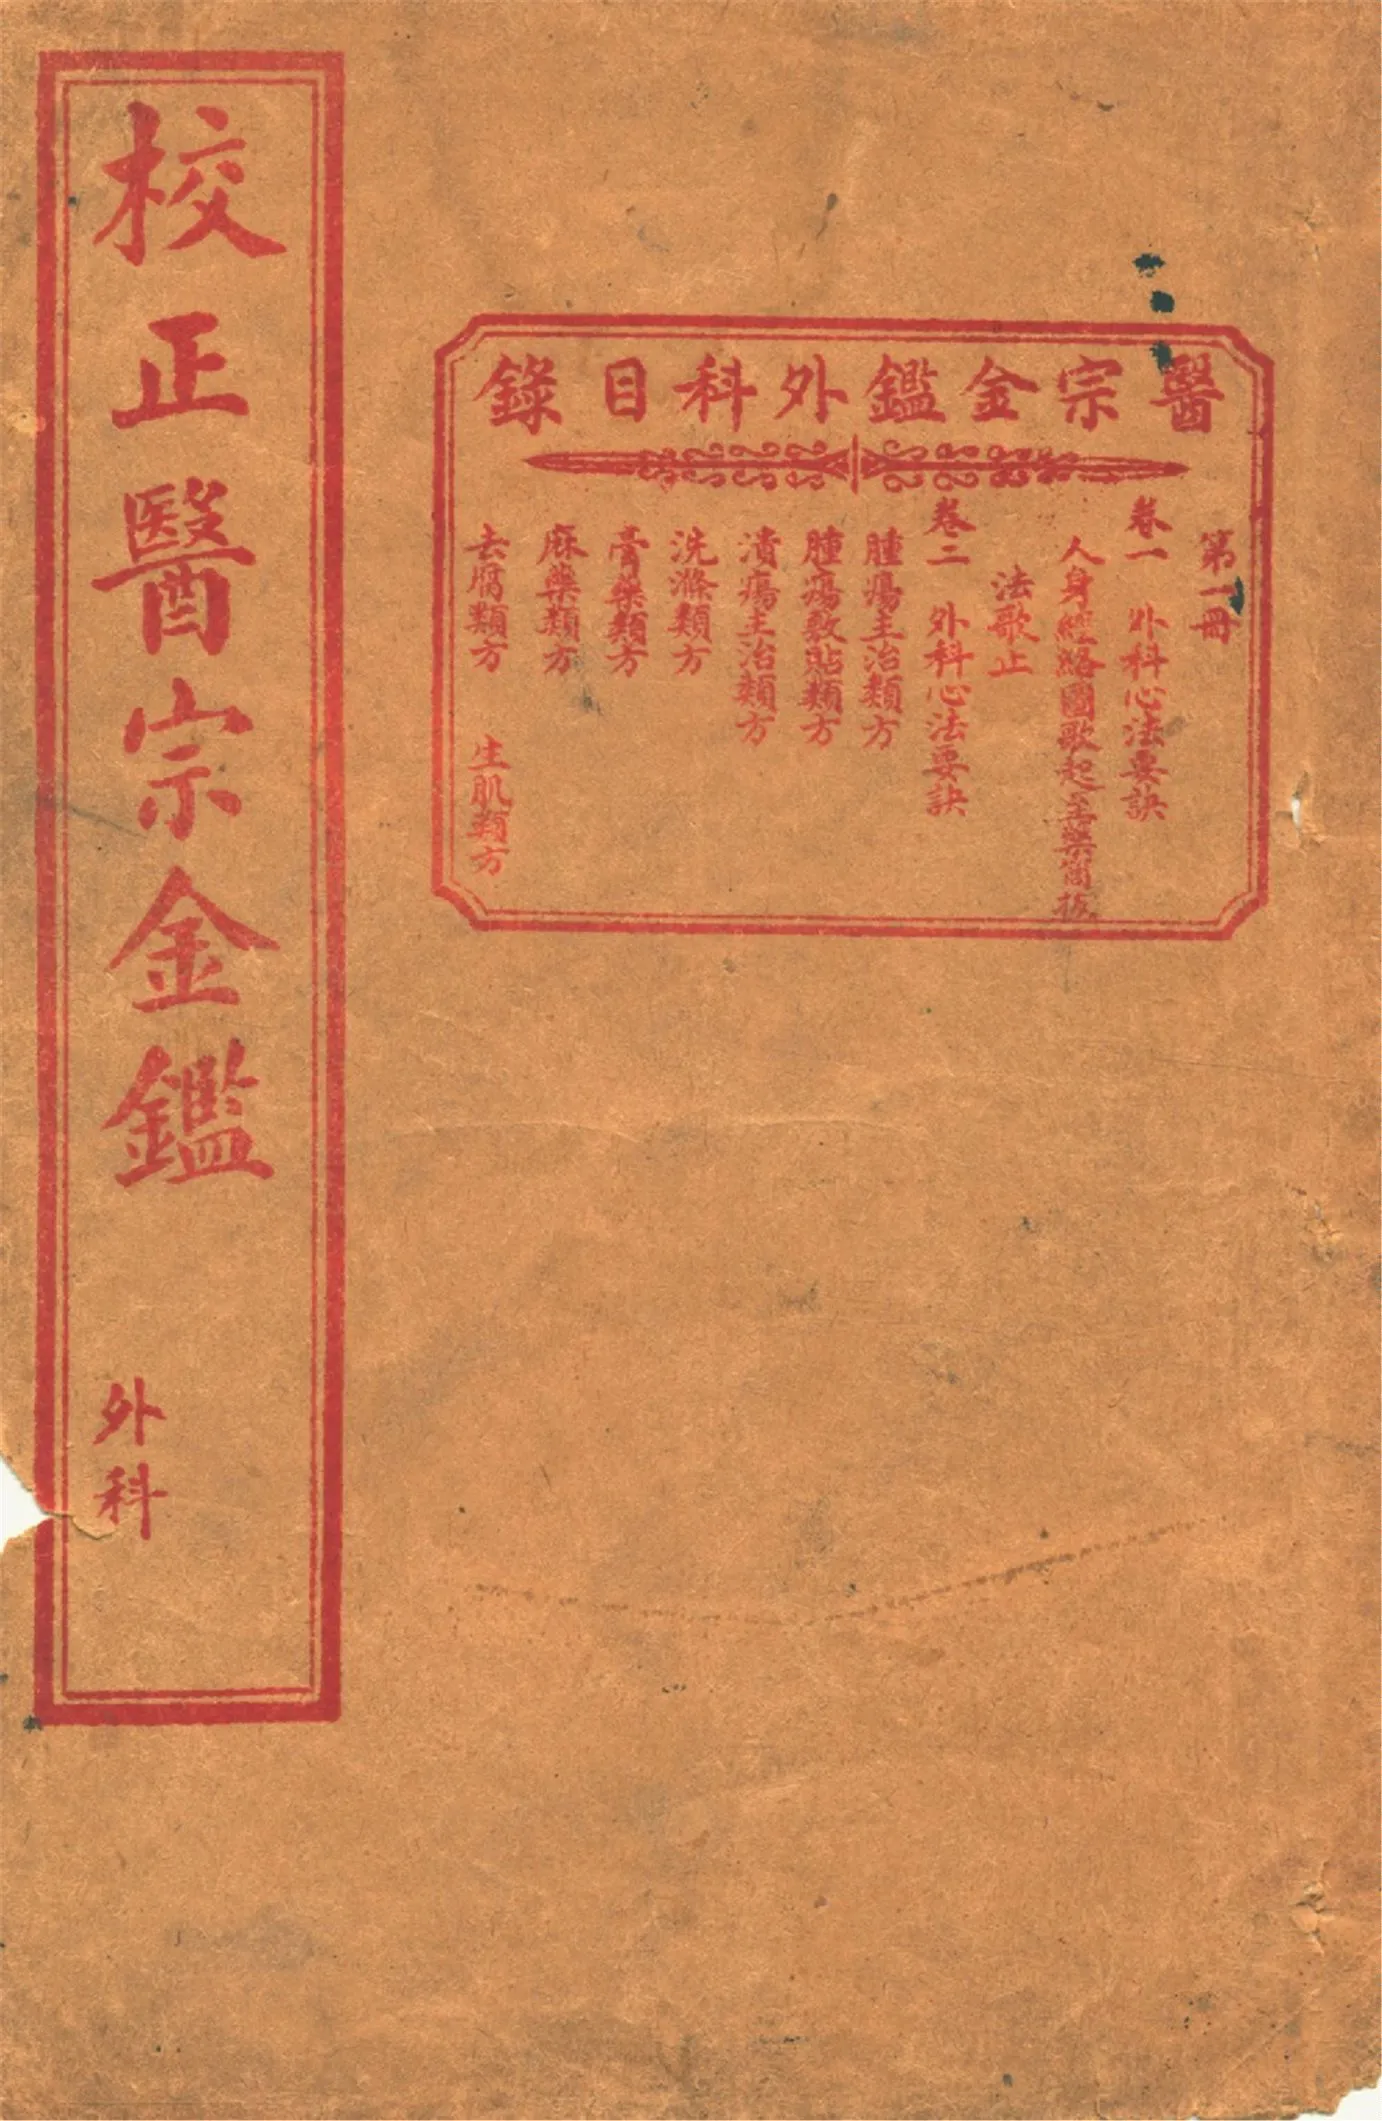 校正醫宗金鑑
外科
醫宗金鑑外科目錄
第一冊
卷一　外科心法要訣
人身經絡圖歌起至藥筒拔
法歌止
卷二　外科心法要訣
腫瘍主治類方
腫瘍敷貼類方
潰瘍主治類方
洗滌類方
膏藥類方
麻藥類方
去腐類方　生肌類方